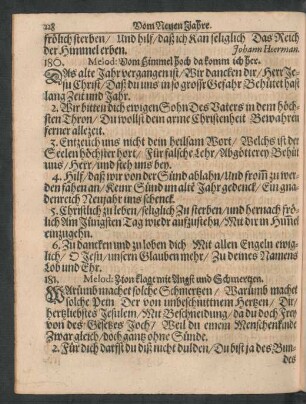 228 Vom Neuen Jahre.
frölich sterben/ Und hilf/ daß ich kan seliglich Das Reich
der Himmel erben. Johann Heerman.
180. Melod: Vom Himmel hoch da komm ich her.
DAs alte Jahr vergangen ist/ Wir dancken dir/ Herr Je-
su Christ/ Daß du uns in so grosser Gefahr Behütet hast
lang Zeit und Jahr.
2. Wir bitten dich ewigen Sohn Des Vaters in dem höch-
sten Thron/ Du wollst dein arme Christenheit Bewahren
ferner allezeit.
3. Entzeuch uns nicht dein heilsam Wort/ Welchs ist der
Seelen höchster hort/ Für falscher Lehr/ Abgötterey Behüt
uns/ Herr/ und sich uns bey.
4. Hilf/ daß wir von der Sünd ablahn/ Und from̃ zu wer-
den fahen an/ Keiner Sünd im alten Jahr gedenck/ Ein gna-
denreich Neujahr uns schenck.
5. Christlich zu leben/ seliglich Zu sterben/ und hernach frö-
lich Am Jüngsten Tag wieder aufzustehn/ Mit dir in Him̃el
einzugehn.
6. Zu dancken und zu loben dich Mit allen Engeln ewig-
lich/ O Jesu/ unsern Glauben mehr/ Zu deines Namens
Lob und Ehr.
181. Melod: Zion klagt mit Angst und Schmertzen.
WArümb machet solche Schmertzen/ Warümb machet
solche Pein Der von unbeschnittnem Hertzen/ Du
hertzliebstes Jesulein/ Mit Beschneidung/ da du doch Frey
von des Gesetzes Joch/ Weil du einem Menschenkinde
Zwar gleich/ doch gantz ohne Sünde.
2. Für dich darfst du diß nicht dulden/ Du bist ja des Bun-
des